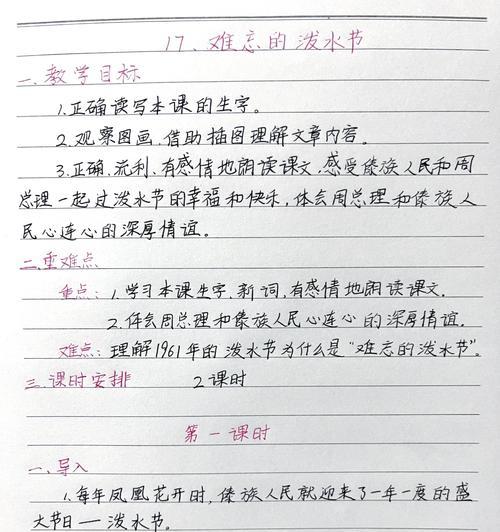 17、难忘的泼水节
一、教学目标
1.正确读写本课的生字。
2.观察图画,借助插图理解文章内容。
3.正确、流利、有感情地朗读课文,感受傣族人民和周
总理一起过泼水节的幸福和快乐,体会周总理和傣族人
民心连心的深厚情谊。
二、重难点
重点:1.学习本课生字、新词,有感情地朗读课文.
2.体会周总理和傣族人民心连心的深厚情谊.
难点:理解1961年的泼水节为什么是“难忘的泼水节”。
三.课时安排 2课时
第一课时
一、导入
1.每年凤凰花开时,傣族人民就迎来了一年一度的盛
大节日——泼水节。